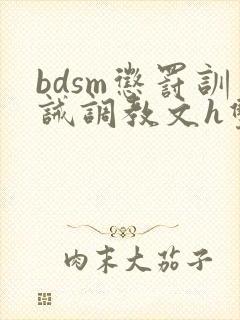 bdsm懲罰訓
誡調教文h
肉末大茄子